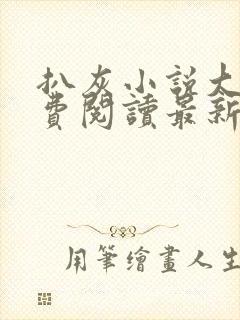 扒灰小說大
費閱讀最新
用筆繪畫人生